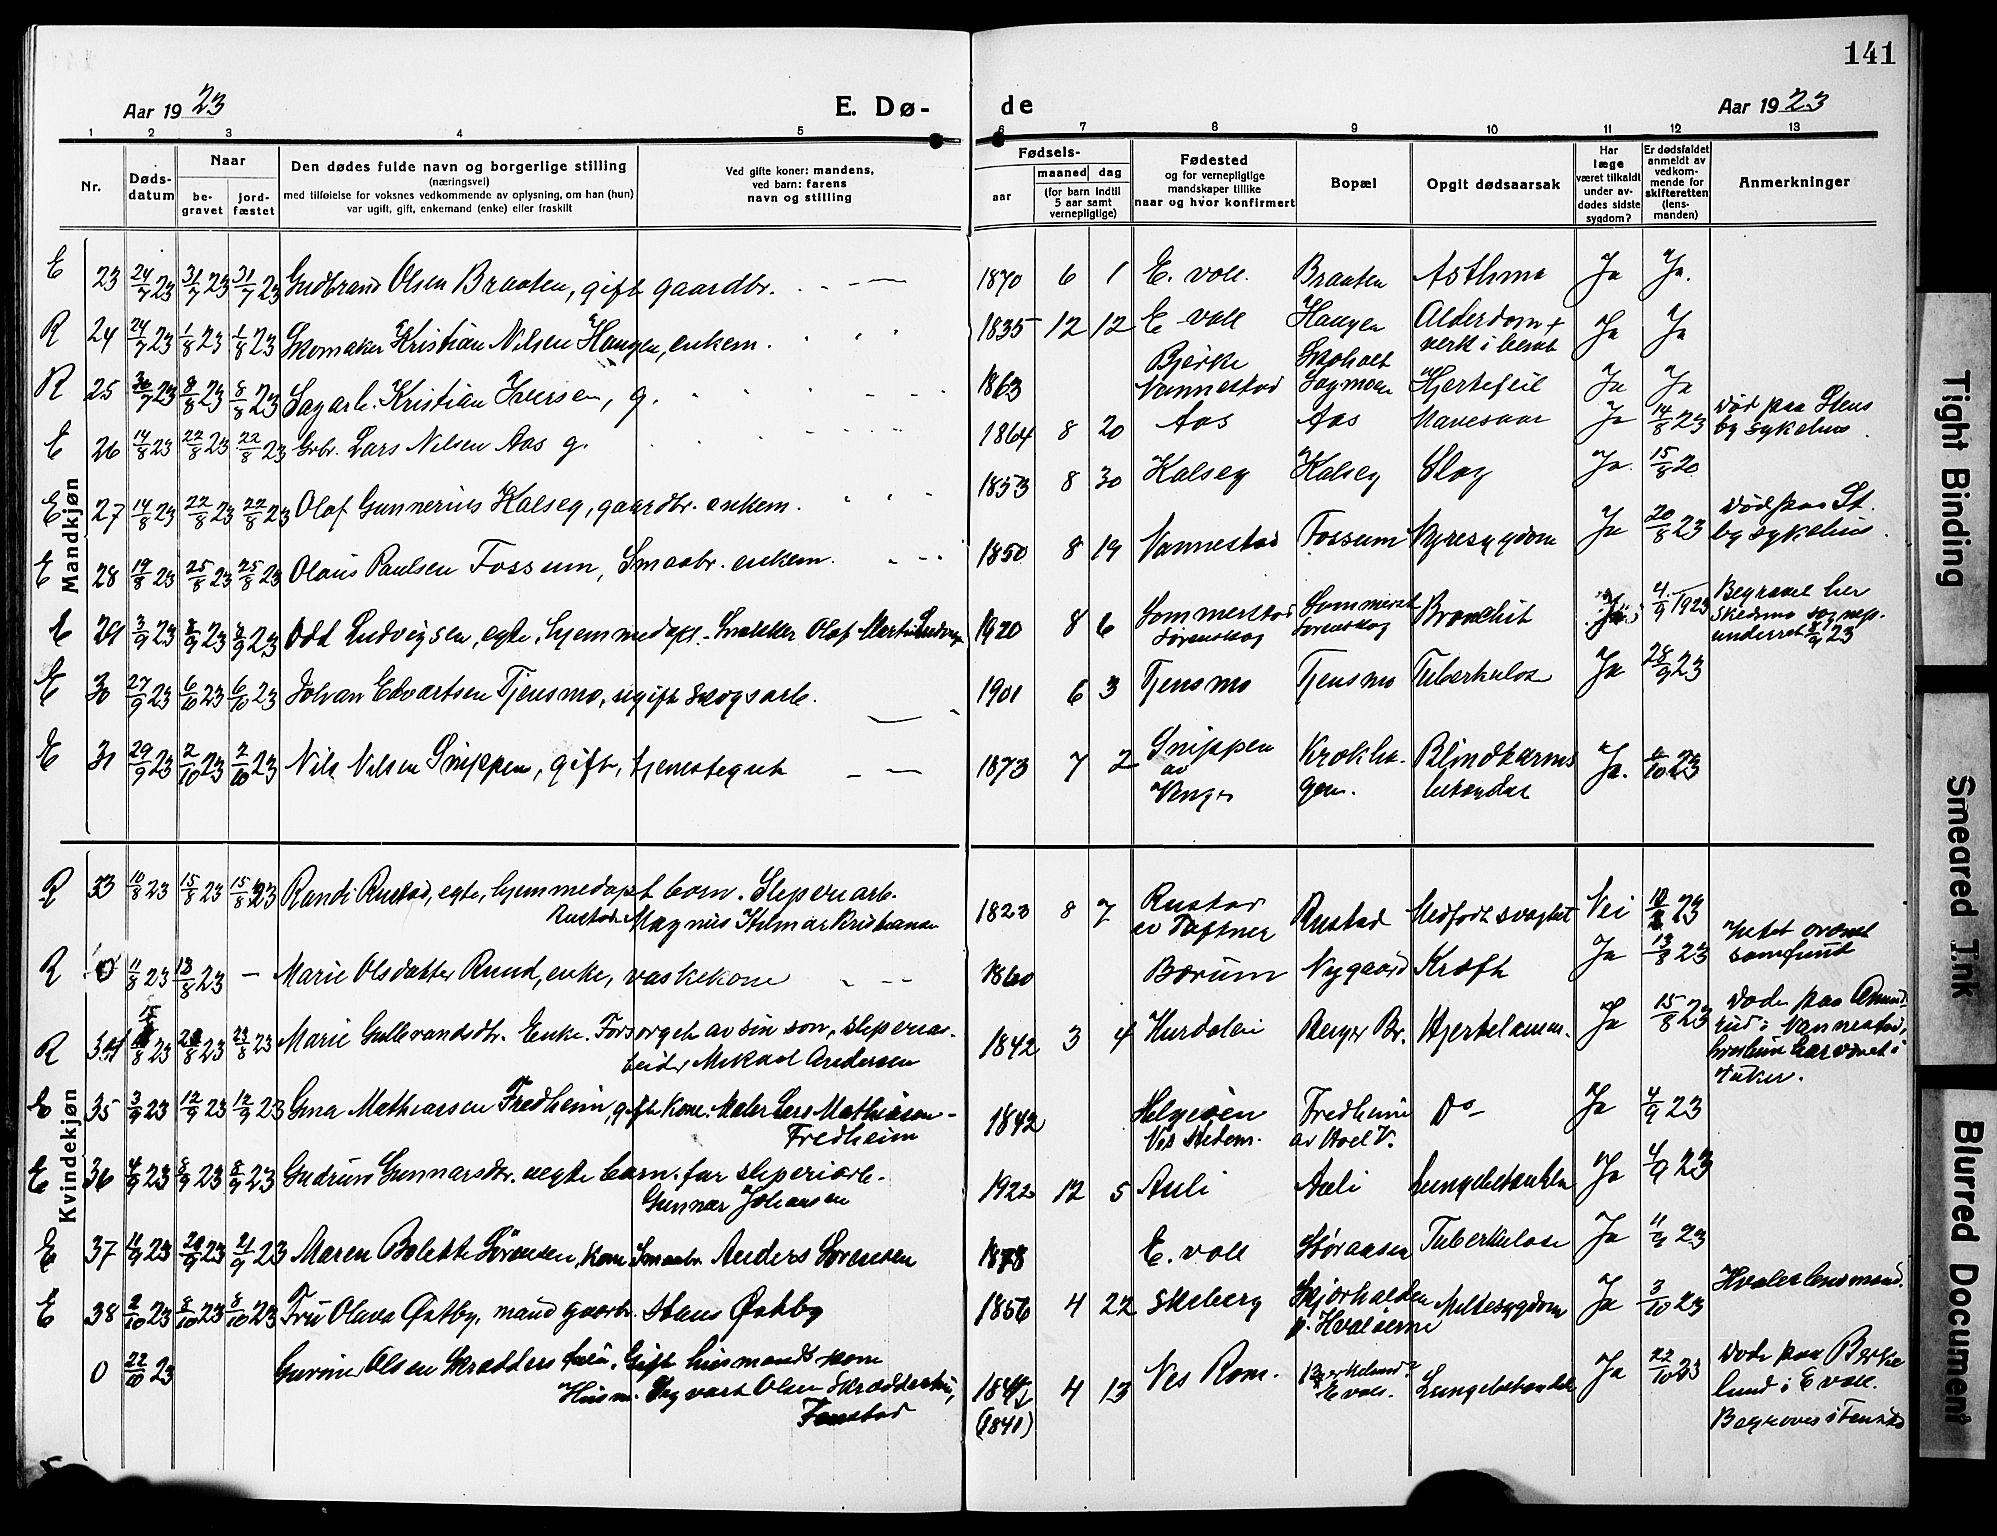 141
Aar 1923
E. Dø-
de
Aar 1923
1 2 3 4 5 6 7 8 9 10 11 12 13
Nr.
Døds-
datum
Naar
be-
gravet
jord-
fæstet
Den dødes fulde navn og borgerlige stilling
(næringsvei)
med tilføielse for voksnes vedkommende av oplysning, om han (hun)
var ugift, gift, enkemand (enke) eller fraskilt
Ved gifte koner: mandens,
ved barn: farens
navn og stilling
Fødsels-
aar
maaned dag
(for barn indtil
5 aar samt
vernepligtige)
Fødested
og for vernepligtige
mandskaper tillike
naar og hvor konfirmert
Bopæl
Opgit dødsaarsak
Har
læge
været tilkaldt
under av-
dødes sidste
sygdom?
Er dødsfaldet
anmeldt av
vedkom-
mende for
skifteretten
(lens-
manden)
Anmerkninger
Mandkjøn
E 23 24/7 23 31/7 23 31/7 23 Gudbrand Olsen Braaten, gift gaardbr. 1870 6 1 E. voll. Braaten Asthma Ja Ja.
R 24 24/7 23 1/8 23 1/8 23 Skomaker Kristian Nilsen Haugen, enkem. 1835 12 12 E voll Haugen Alderdom + Ja Ja
verk i
R 25 30/7 23 8/8 23 8/8 23 Sagarb. Kristian Iversen, g. 1863 Bjerke Skoholt
Nannestad Sagmoen Hjertefeil Ja Ja
E 26 14/8 23 22/8 23 22/8 23 Grbr. Lars Nilsen Aas g. 1864 8 20 Aas Aas Mavesaar Ja 14/8 23 Død paa Stens
by sykehus.
E 27 14/8 23 22/8 23 22/8 23 Olaf Gunnerius Kalseg, gaardbr. enkem. 1853 8 30 Kalseg Kalseg Slag Ja. 15/8 20
E 28 19/8 23 25/8 23 25/8 23 Olaus Paulsen Fossum, Smaabr. enkem. 1850 8 19 Nannestad Fossum Nyresygdom Ja 20/8 23 Død paa St.
by sykehus.
E 29 3/9 23 8/9 23 8/9 23 Odd Ludvigsen, egte, hjemmedøpt. Snekker Olaf Martin Ludvigs 1920 8 6 Sommerstad
Sørenskog Sommerst
Sorenskog Bronchit Ja 4/9 1923 Begravet her
Skedsmo sognep.
underret 8/9 23
E 30 27/9 23 6/10 23 6/10 23 Johan Edvartsen Tjensmo, ugift skogsarb. 1901 6 3 Tjensmo Tjensmo Tuberkulose Ja 28/9 23
E 31 29/9 23 2/10 23 2/10 23 Nils Nilsen Snippen, gift, tjenestegut 1873 7 2 Snippen Krokha- Blindtarms Ja. /10 23
av gen. betændelse
Kvindekjøn
R 33 10/8 23 15/8 23 15/8 23 Randi Rustad, egte, hjemmedøpt barn. Sliperiarb.
Rustad. Magnus Hilmar Kristiansen 1823 8 7 Rustad
av Tøftner Rustad Medfødt svaghet Nei 23
R 0 11/8 23 18/8 23 — Marie Olsdatter Rund, enke, vaskekone 1860 Børum Nygaard Kræft Ja 13/8 23
samfund
R 34 /8 23 /8 23 23/8 23 Marie Gulbrandsdtr. Enke. Forsørget av sin søn, sliperiar-
beider Mikael Andersen 1842 3 4 Hurdalen Berger Br. Hjertelammelse. Ja 15/8 23 Døde paa Amund
rud i Nannestad,
hvor hun har været i
E 35 3/9 23 12/9 23 12/9 23 Gina Mathiassen Fredheim, gift kone. Maler Lars Mathiesen -
Fredheim 1842 Helgeøen
Nes Hedem. Fredheim
av Aoel V. Do- Ja 4/9 23
E 36 4/9 23 8/9 23 8/9 23 Gudrun Gunnarsdtr. uegte barn. far sliperiarb.
Gunnar Johansen 1922 12 5 Auli Auli Lungebetændelse Ja 4/9 23
E 37 11/9 23 21/9 23 21/9 23 Maren Bolette Sørensen, kone Smaabr. Anders Sørensen 1878 E. voll Støraasen Tuberkulose Ja 11/9 23
E 38 2/10 23 8/10 23 8/10 23 Fru Olava Østby, mand gaardbr. Hans Østby 1856 4 22 Skeberg Skjærhalden
p. Hvaløerne Miltesygdom Ja 3/10 23 Hvaler lensmand.
0 22/10 23 Gurine Olsen Skrædderstuen, Gift husmands kone
Husm. Sigvart Olsen Skrædderstuen,
Fenstad 1842
(1841) 4 13 Nes Rom. Berkelund?
E voll. Lungebetændelse Ja 22/10 23 Døde paa Berke
lund i E voll.
Begraves i Fenstad
Tight Binding
Smeared Ink
Blurred Document